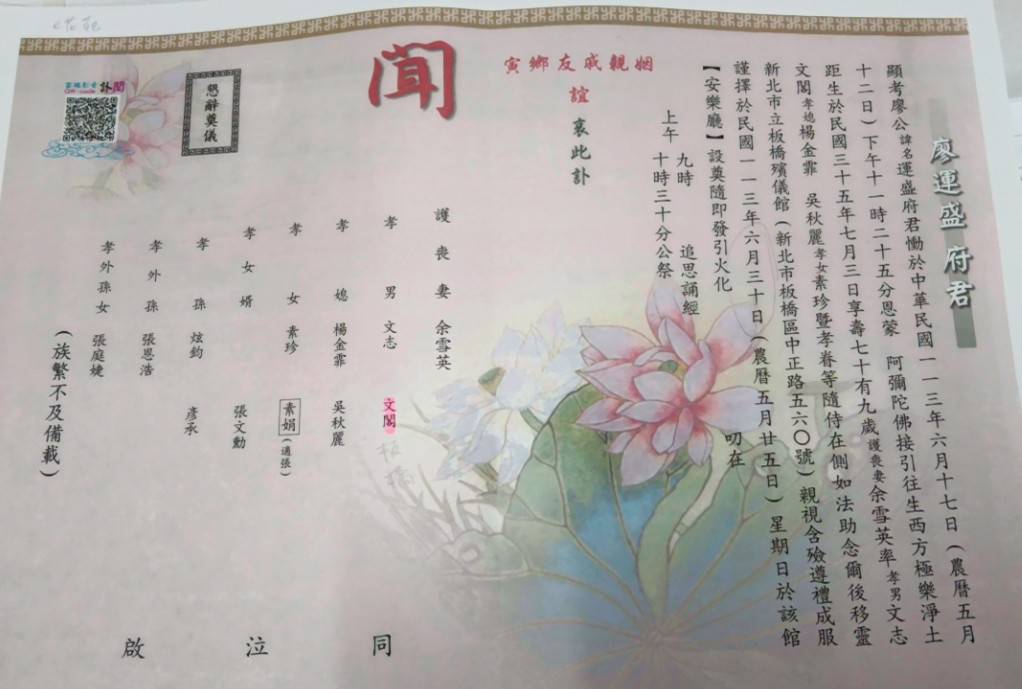 廖運盛 府君
顯考廖公諱名運盛府君慟於中華民國一一三年六月十七日（農曆五月
十二日）下午十一時二十五分恩蒙 阿彌陀佛接引往生西方極樂淨土
距生於民國三十五年七月三日享壽七十有九歲護喪妻余雪英率孝男文志
文閣孝媳楊金霏 吳秋麗孝女素珍暨孝眷等隨侍在側如法助念爾後移靈
新北市立板橋殯儀館（新北市板橋區中正路五六〇號）親視含殮遵禮成服
謹擇於民國一一三年六月三十日（農曆五月廿五日）星期日於該館
【安樂廳】設奠隨即發引火化 叨在
上午
九時 追思誦經
十時三十分公祭
姻親戚友鄉寅
誼
哀此訃
聞
護喪妻 余雪英
孝男 文志 文閣
板橋
孝媳 楊金霏 吳秋麗
孝女 素珍 素娟（適張）
孝女婿 張文勳
孝孫 炫鈞 彥承
孝外孫 張恩浩
孝外孫女 張庭婕
（族繁不及備載）
同泣啟
懇辭奠儀
訃聞
QR code